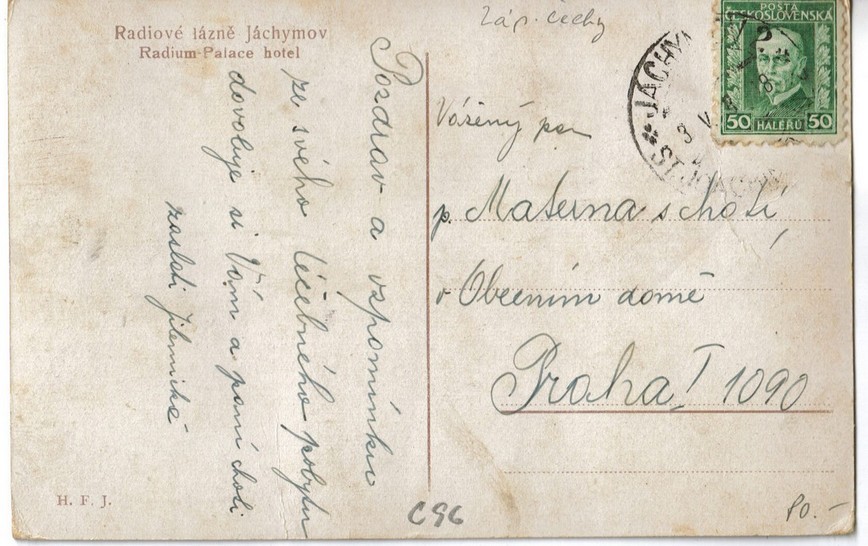 Radiové lázně Jáchymov
Radium-Palace hotel
Záp. Čechy
POŠTA
ČESKOSLOVENSKÁ
50 HALÉŘŮ 50
JÁCHYM
ST. JOACHIM
3 V
Pozdrav a vzpomínku
ze svého léčebného pobytu
dovoluje si Vám a paní choti
zaslati
Vážený pan
p. Materna s chotí
v Obecním domě
Praha I 1090
H. F. J.
C96
80.-